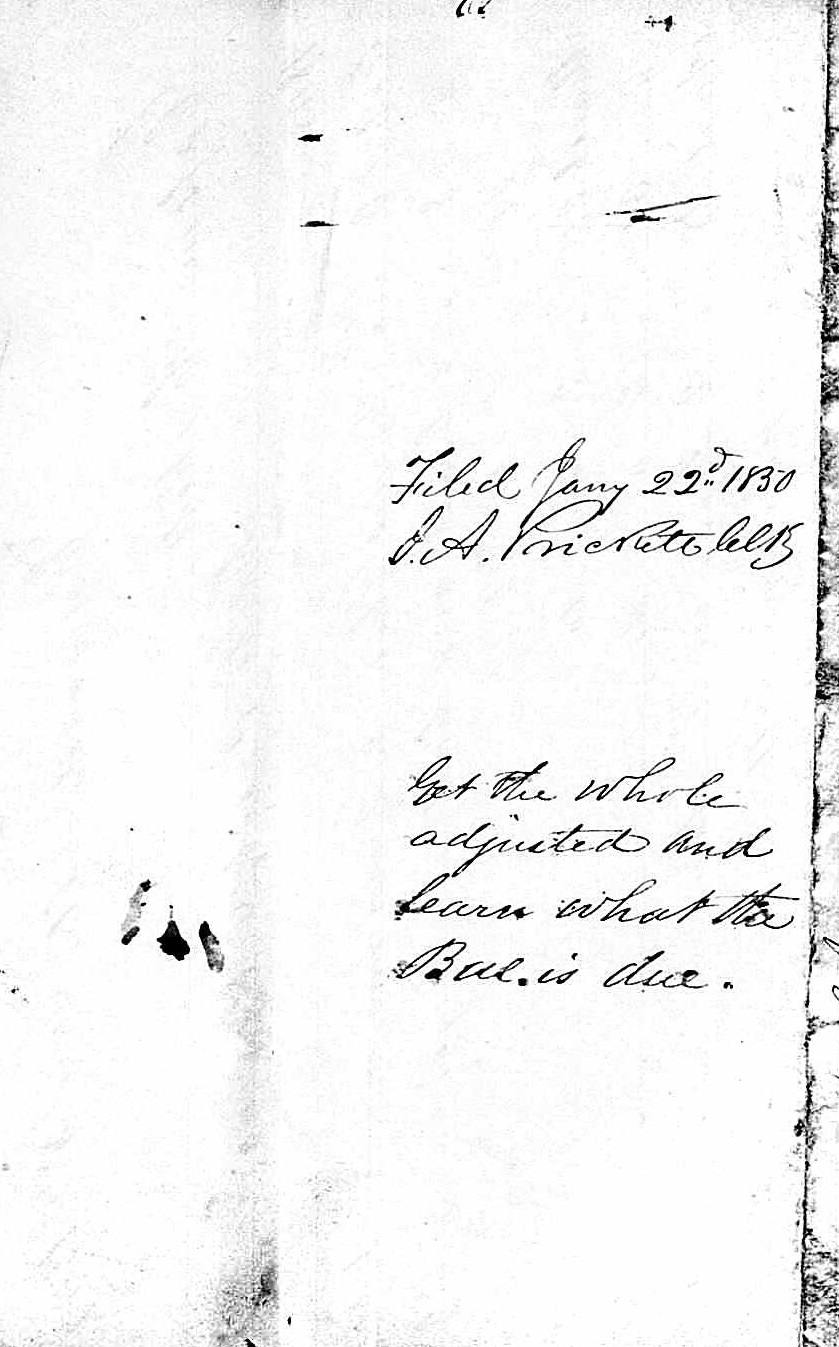 Filed Jany 22d 1850
I. A. Prickett Clk
Get the whole
adjusted and
learn what the
Bal. is due.